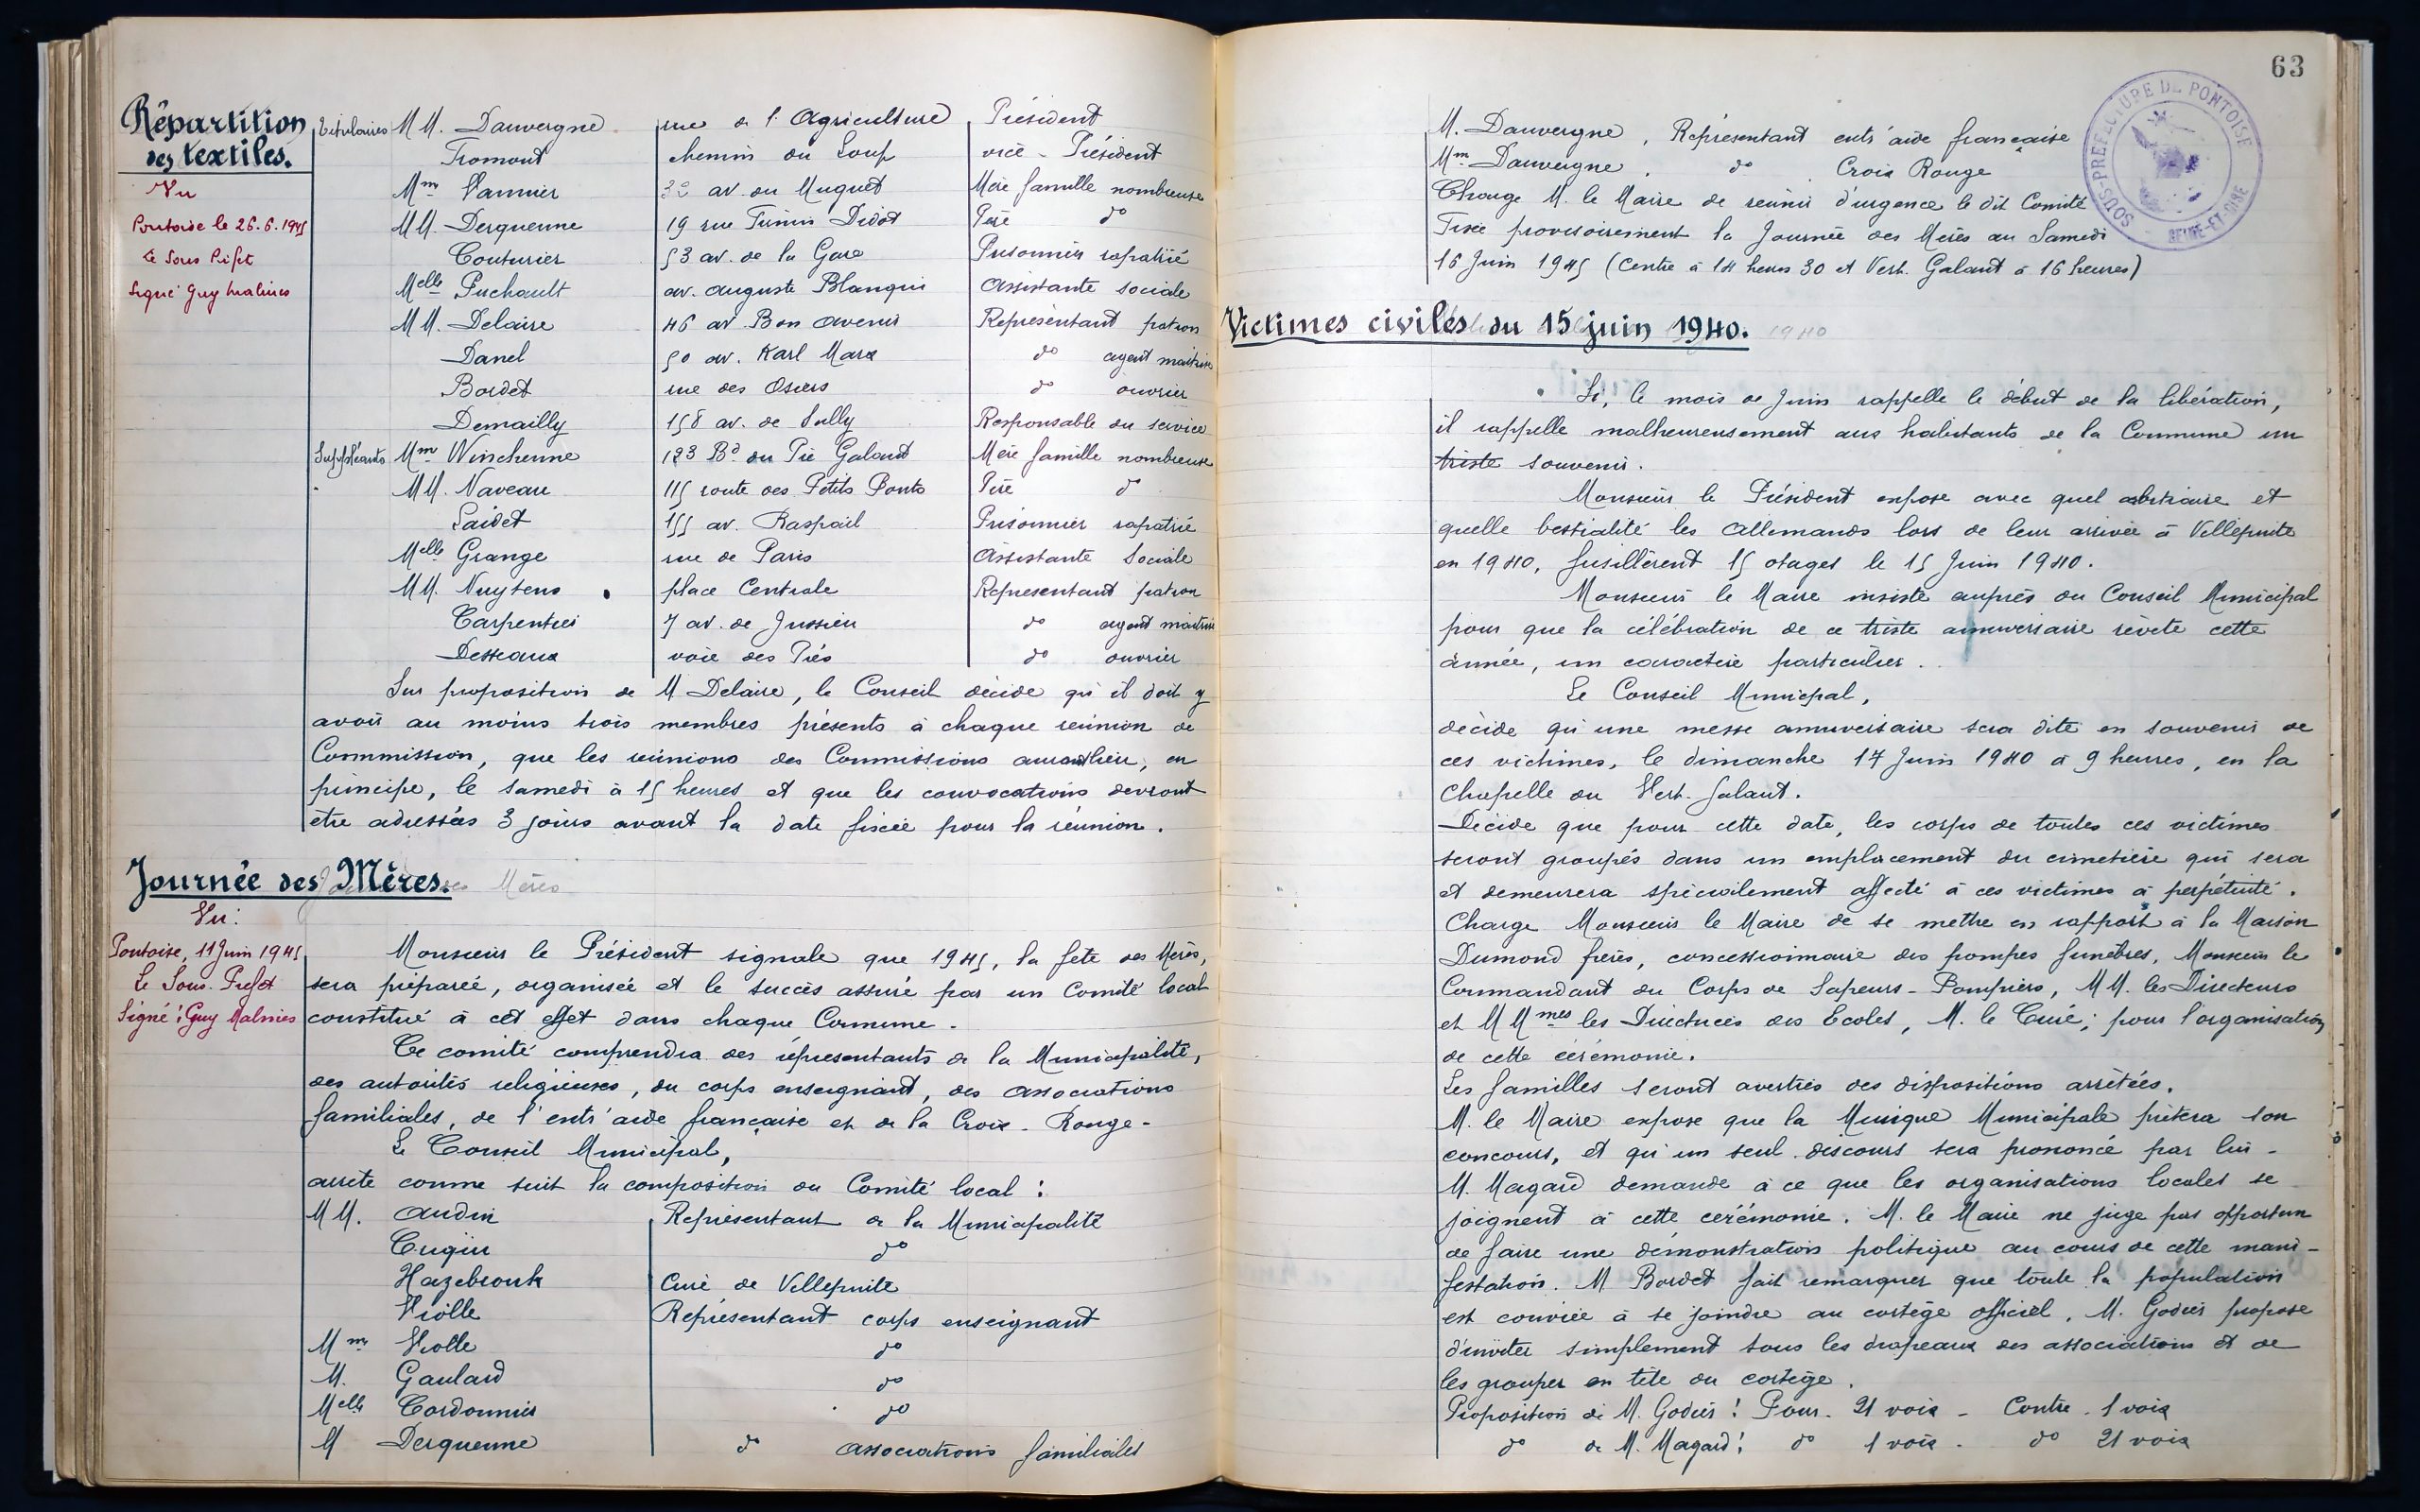 Répartition
des textiles.
Vu
Pontoise le 26.6.1945
Le Sous Préfet
Signé Guy Malines
Titulaires MM. Dauvergne rue de l'Agriculture Président
Fromont chemin du Loup vice-Président
Mme Vannier 32 av. du Muguet Mère famille nombreuse
MM. Derquenne 19 rue Firmin Didot Père do
Couturier 53 av. de la Gare Prisonnier rapatrié
Melle Puchault av. Auguste Blanqui Assistante sociale
MM. Delaire 46 av Bon Avenir Représentant patron
Danel 50 av. Karl Marx do agent maitrise
Bordet rue des Osiers do ouvrier
Demailly 158 av. de Sully Responsable du service
Suppléants Mme Winchenne 123 Bd du Pré Galant Mère famille nombreuse
MM. Naveau 115 route des Petits Ponts Père do
Laidet 155 av. Raspail Prisonnier rapatrié
Melle Grange rue de Paris Assistante Sociale
MM. Nuytens place Centrale Représentant patron
Carpentier 7 av. de Jussieu do agent maitrise
Desseaux voie des Prés do ouvrier
Sur proposition de M. Delaire, le Conseil décide qu'il doit y
avoir au moins trois membres présents à chaque réunion de
Commmission, que les réunions des Commissions auront lieu, en
principe, le samedi à 15 heures et que les convocations devront
être adressées 3 jours avant la date fixée pour la réunion.
Journée des Mères.
Vu:
Pontoise, 11 Juin 1945
Le Sous-Préfet
Signé: Guy Malines
Monsieur le Président signale que 1945, la fête des Mères,
sera préparée, organisée et le succès assuré par un Comité local
constitué à cet effet dans chaque Commune.
Ce comité comprendra des représentants de la Municipalité,
des autorités religieuses, du corps enseignant, des associations
familiales, de l'entr'aide française et de la Croix-Rouge-
Le Conseil Municipal,
arrête comme suit la composition du Comité local:
MM. Audin Représentant de la Municipalité
Cugin do
Hazebrouk Curé de Villepinte
Violle Représentant corps enseignant
Mme Violle do
M. Gaulard do
Melle Cordonnier do
M Derquenne do associations familiales
63
SOUS-PREFECTURE DE PONTOISE
SEINE-ET-OISE
M. Dauvergne, Représentant entr'aide française
Mme Dauvergne, do Croix Rouge
Charge M. le Maire de réunir d'urgence le dit Comité
Fixe provisoirement la Journée des Mères au Samedi
16 Juin 1945 (Centre à 14 heures 30 et Vert-Galant à 16 heures)
Victimes civiles du 15 juin 1940.
Si, le mois de Juin rappelle le début de la libération,
il rappelle malheureusement aux habitants de la Commune un
triste souvenir.
Monsieur le Président expose avec quel arbitraire et
quelle bestialité les Allemands lors de leur arrivée à Villepinte
en 1940, fusillèrent 15 otages le 15 Juin 1940.
Monsieur le Maire insiste auprès du Conseil Municipal
pour que la célébration de ce triste anniversaire revête cette
année, un caractère particulier.
Le Conseil Municipal,
décide qu'une messe anniversaire sera dite en souvenir de
ces victimes, le dimanche 17 Juin 1940 à 9 heures, en la
Chapelle du Vert-Galant.
Décide que pour cette date, les corps de toutes ces victimes
seront groupés dans un emplacement du cimetière qui sera
et demeurera spécialement affecté à ces victimes à perpétuité.
Charge Monsieur le Maire de se mettre en rapport à la Maison
Dumond frères, concessionnaire des pompes funèbres, Monsieur le
Commandant du Corps de Sapeurs-Pompiers, MM. les Directeurs
et MMmes les Directrices des Ecoles, M. le Curé; pour l'organisation
de cette cérémonie.
Les familles seront averties des dispositions arrêtées.
M. le Maire expose que la Musique Municipale prêtera son
concours, et qu'un seul discours sera prononcé par lui-
M. Magard demande à ce que les organisations locales se
joignent à cette cérémonie. M. le Maire ne juge pas opportun
de faire une démonstration politique au cours de cette mani-
festation. M. Bordet fait remarquer que toute la population
est conviée à se joindre au cortège officiel. M. Godier propose
d'inviter simplement tous les drapeaux des associations et de
les grouper en tête du cortège.
Proposition de M. Godier: Pour. 21 voix - Contre. 1 voix
do de M. Magard: do 1 voix. do 21 voix